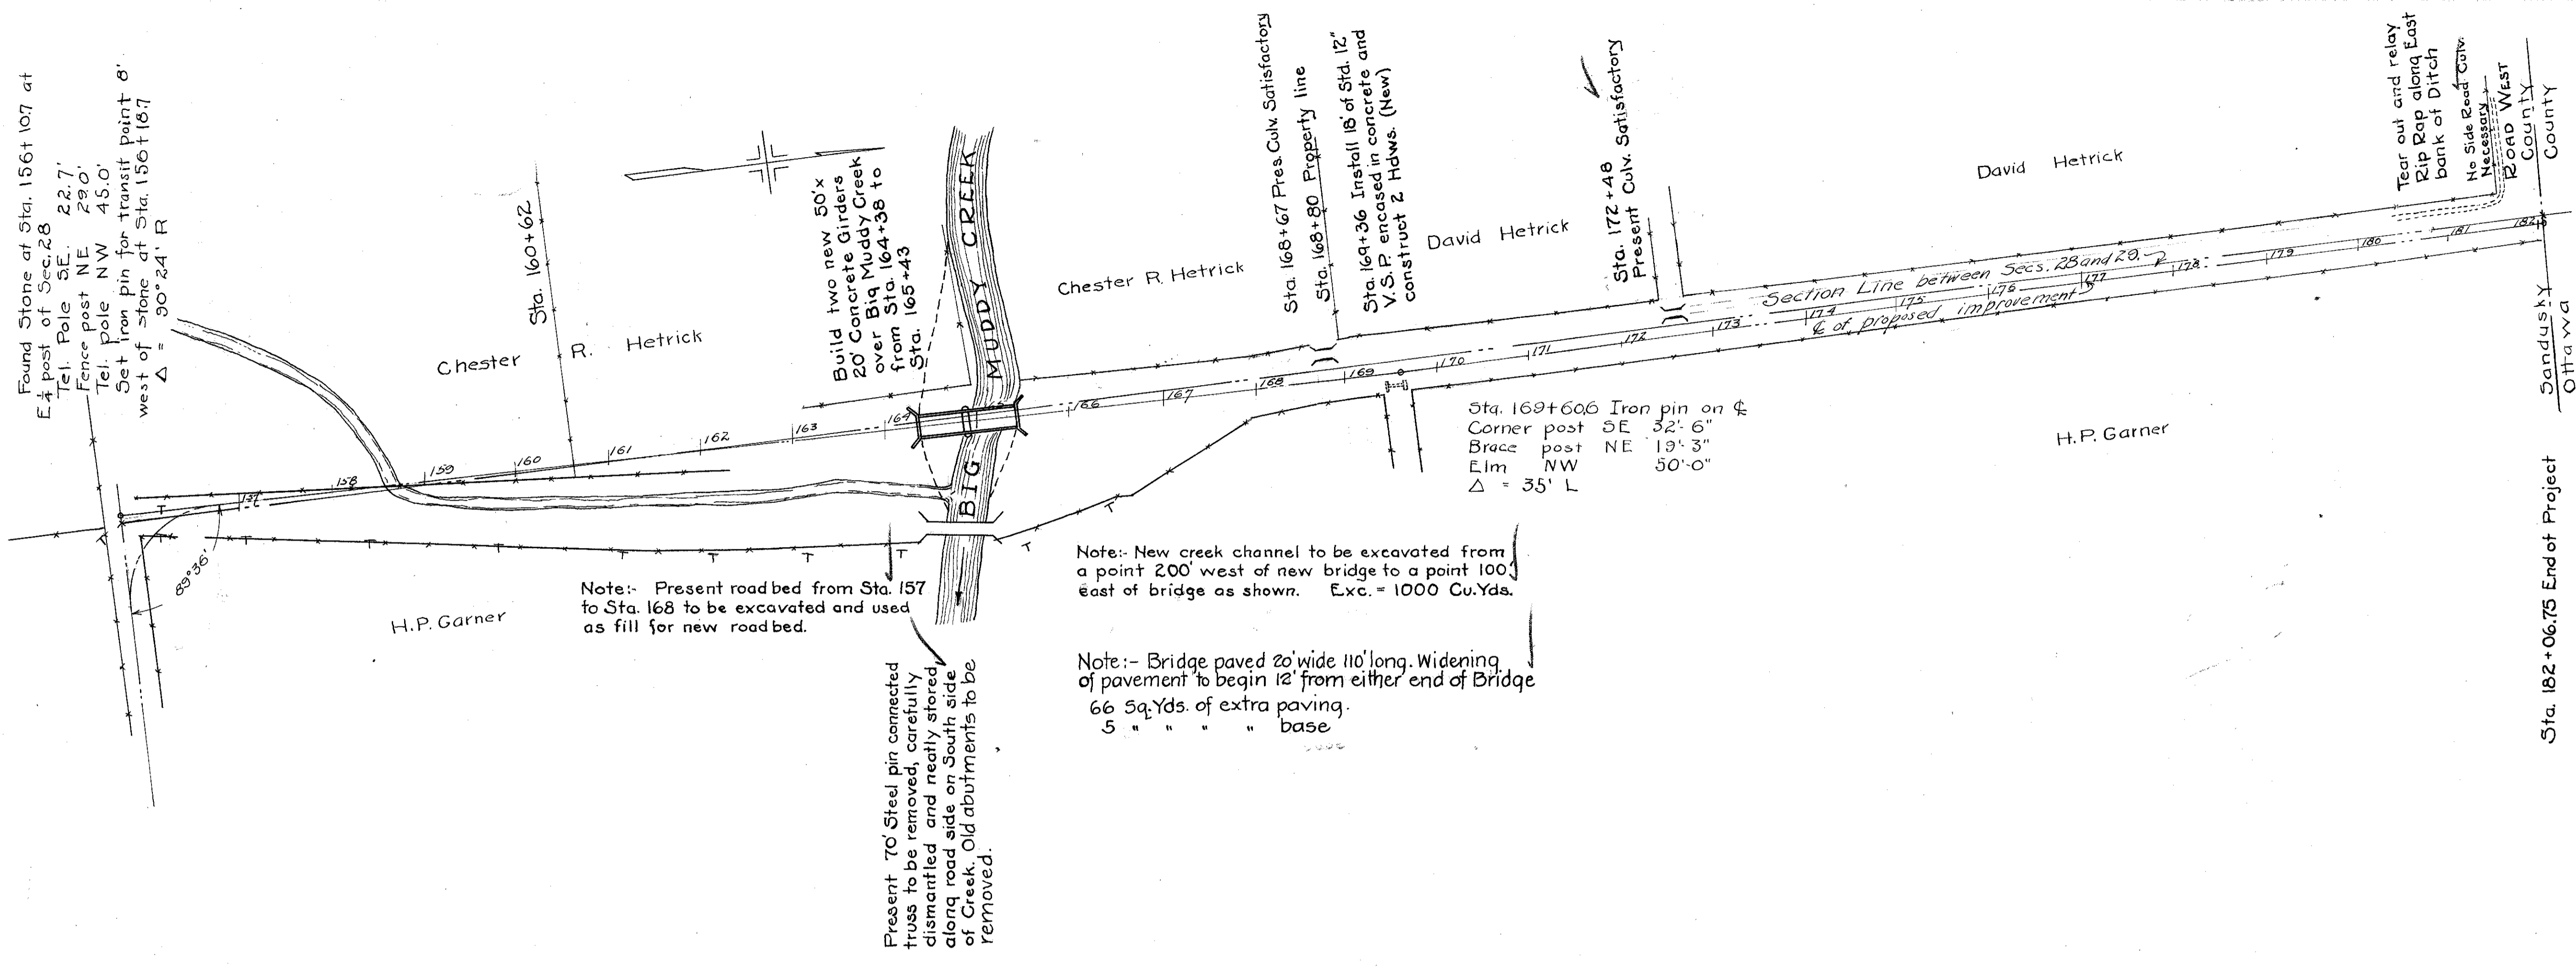 Found Stone at Sta. 156+10.7 at
E ¼ post of Sec. 28
Tel. Pole S.E. 22.7'
Fence post NE 29.0'
Tel. pole NW 45.0'
Set iron pin for transit point 8'
west of stone at Sta. 156+18.7
Δ = 90°24' R
Sta. 160+62
Chester R. Hetrick
Build two new 50'x
20' Concrete Girders
over Big Muddy Creek
from Sta. 164+38 to
Sta. 165+43
BIG MUDDY CREEK
Chester R. Hetrick
Sta. 168+67 Pres. Culv. Satisfactory
Sta. 168+80 Property line
Sta. 169+36 Install 18' of Std. 12"
V.S.P. encased in concrete and
construct 2 Hdws. (New)
David Hetrick
Sta. 172+48
Present Culv. Satisfactory
David Hetrick
Tear out and relay
Rip Rap along East
bank of Ditch
No Side Road Culv.
Necessary
ROAD WEST
Sandusky County
Ottawa County
Section Line between Secs. 28 and 29.
℄ of proposed improvement
157 158 159 160 161 162 163 164 165 166 167 168 169 170 171 172 173 174 175 176 177 178 179 180 181 182
Sta. 169+60.6 Iron pin on ℄
Corner post SE 32'-6"
Brace post NE 19'-3"
Elm NW 50'-0"
Δ = 35' L
H.P. Garner
Sta. 182+06.75 End of Project
89°36'
T T T T T T T T T T
H.P. Garner
Note:- Present road bed from Sta. 157
to Sta. 168 to be excavated and used
as fill for new road bed.
Note:- New creek channel to be excavated from
a point 200' west of new bridge to a point 100'
east of bridge as shown. Exc. = 1000 Cu.Yds.
Note:- Bridge paved 20' wide 110' long. Widening
of pavement to begin 12' from either end of Bridge
66 Sq.Yds. of extra paving.
5 " " " " base
Present 70' Steel pin connected
truss to be removed, carefully
dismantled and neatly stored
along road side on South side
of Creek. Old abutments to be
removed.